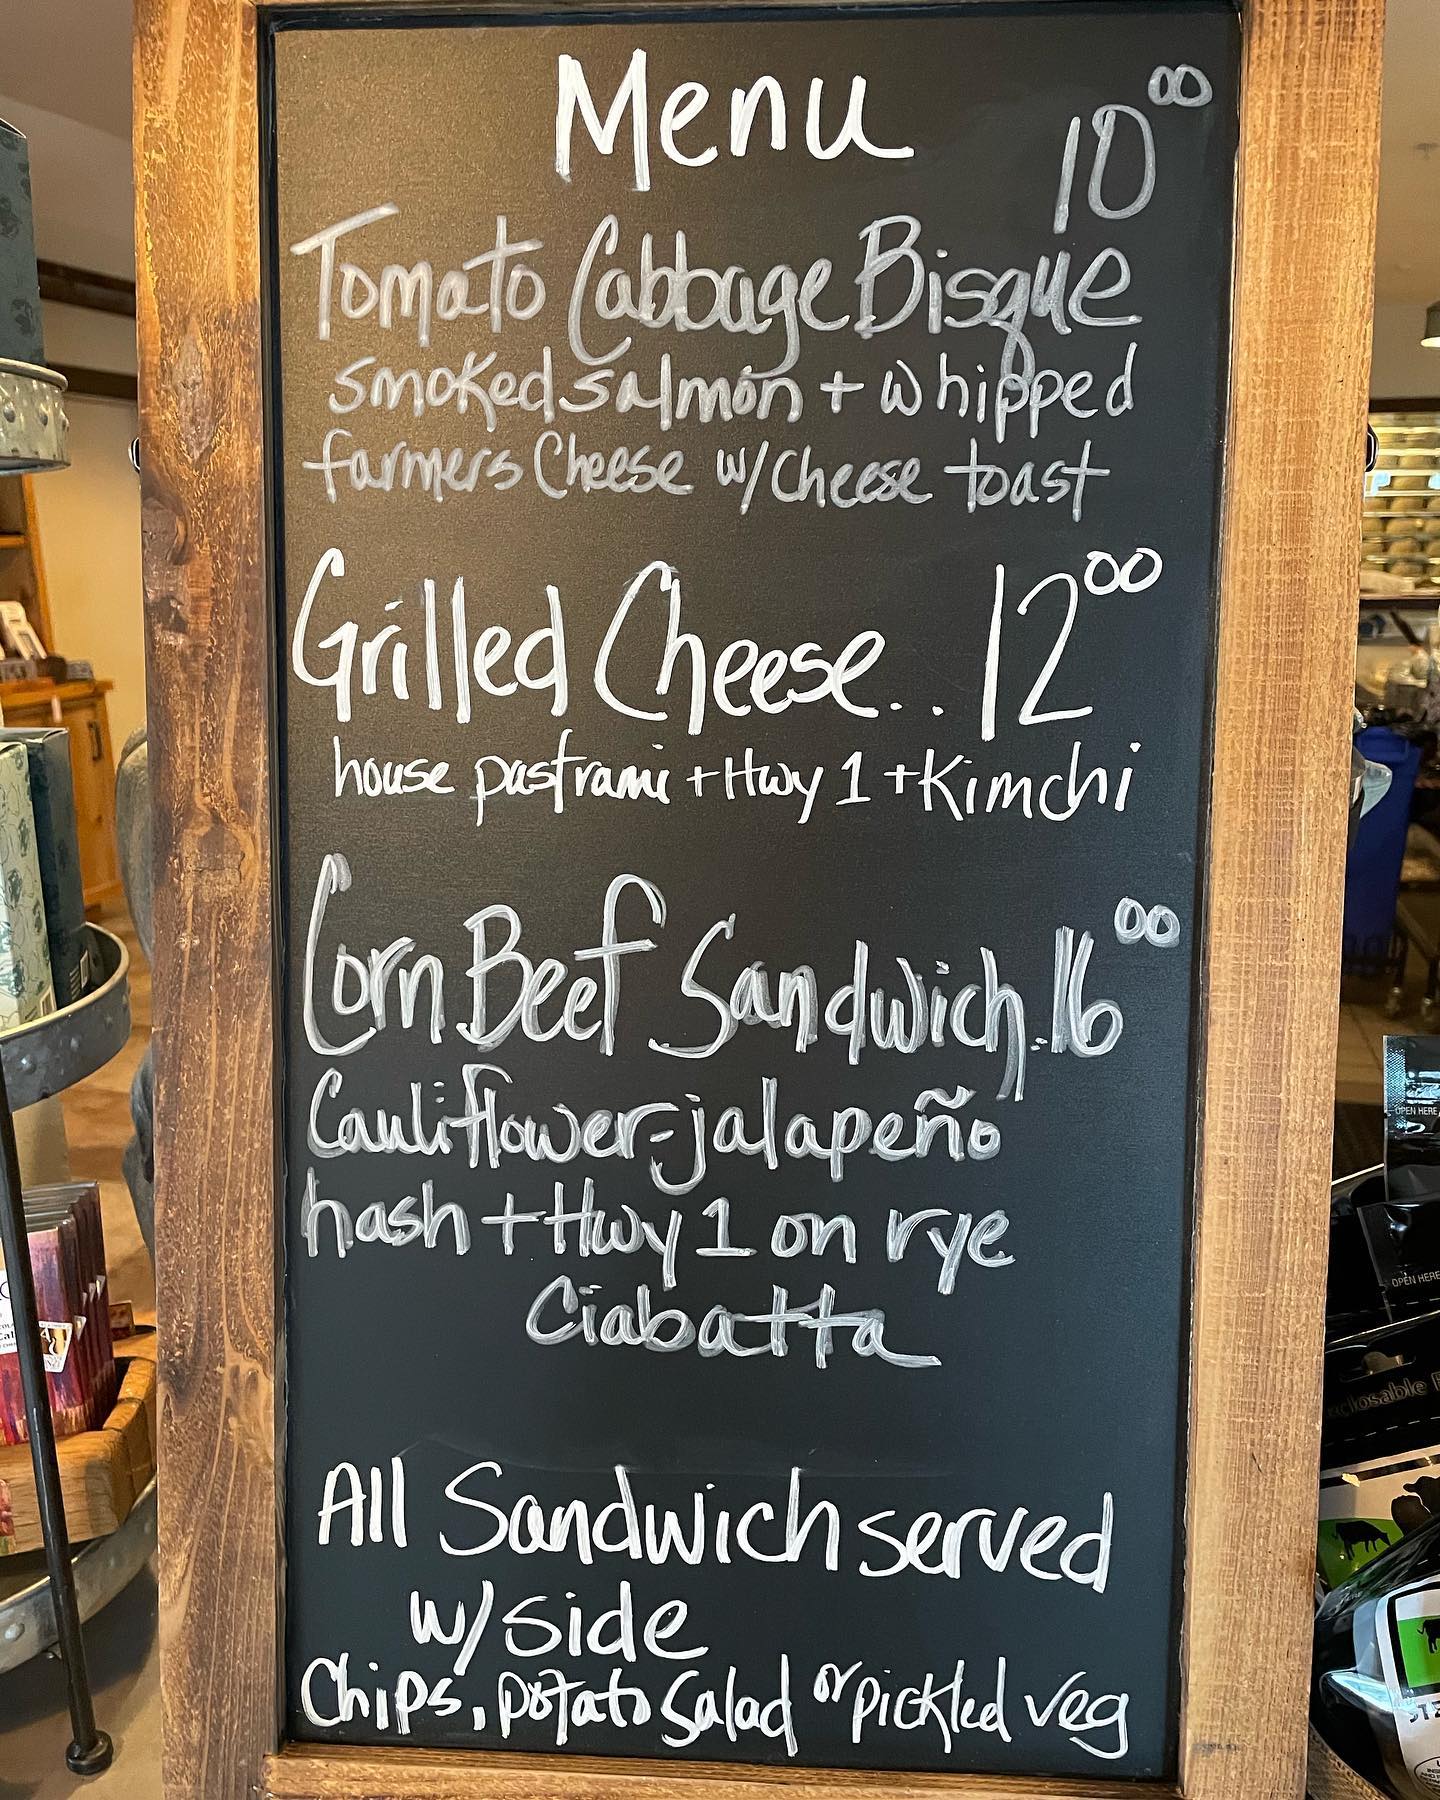 Menu
10⁰⁰
Tomato Cabbage Bisque
smoked salmon + whipped
farmers Cheese w/ cheese toast
Grilled Cheese.. 12⁰⁰
house pastrami + Hwy 1 + Kimchi
Corn Beef Sandwich..16⁰⁰
Cauliflower-jalapeño
hash + Hwy 1 on rye
Ciabatta
All Sandwich served
w/ side
Chips, potato salad or pickled veg
OPEN HERE
OPEN HERE